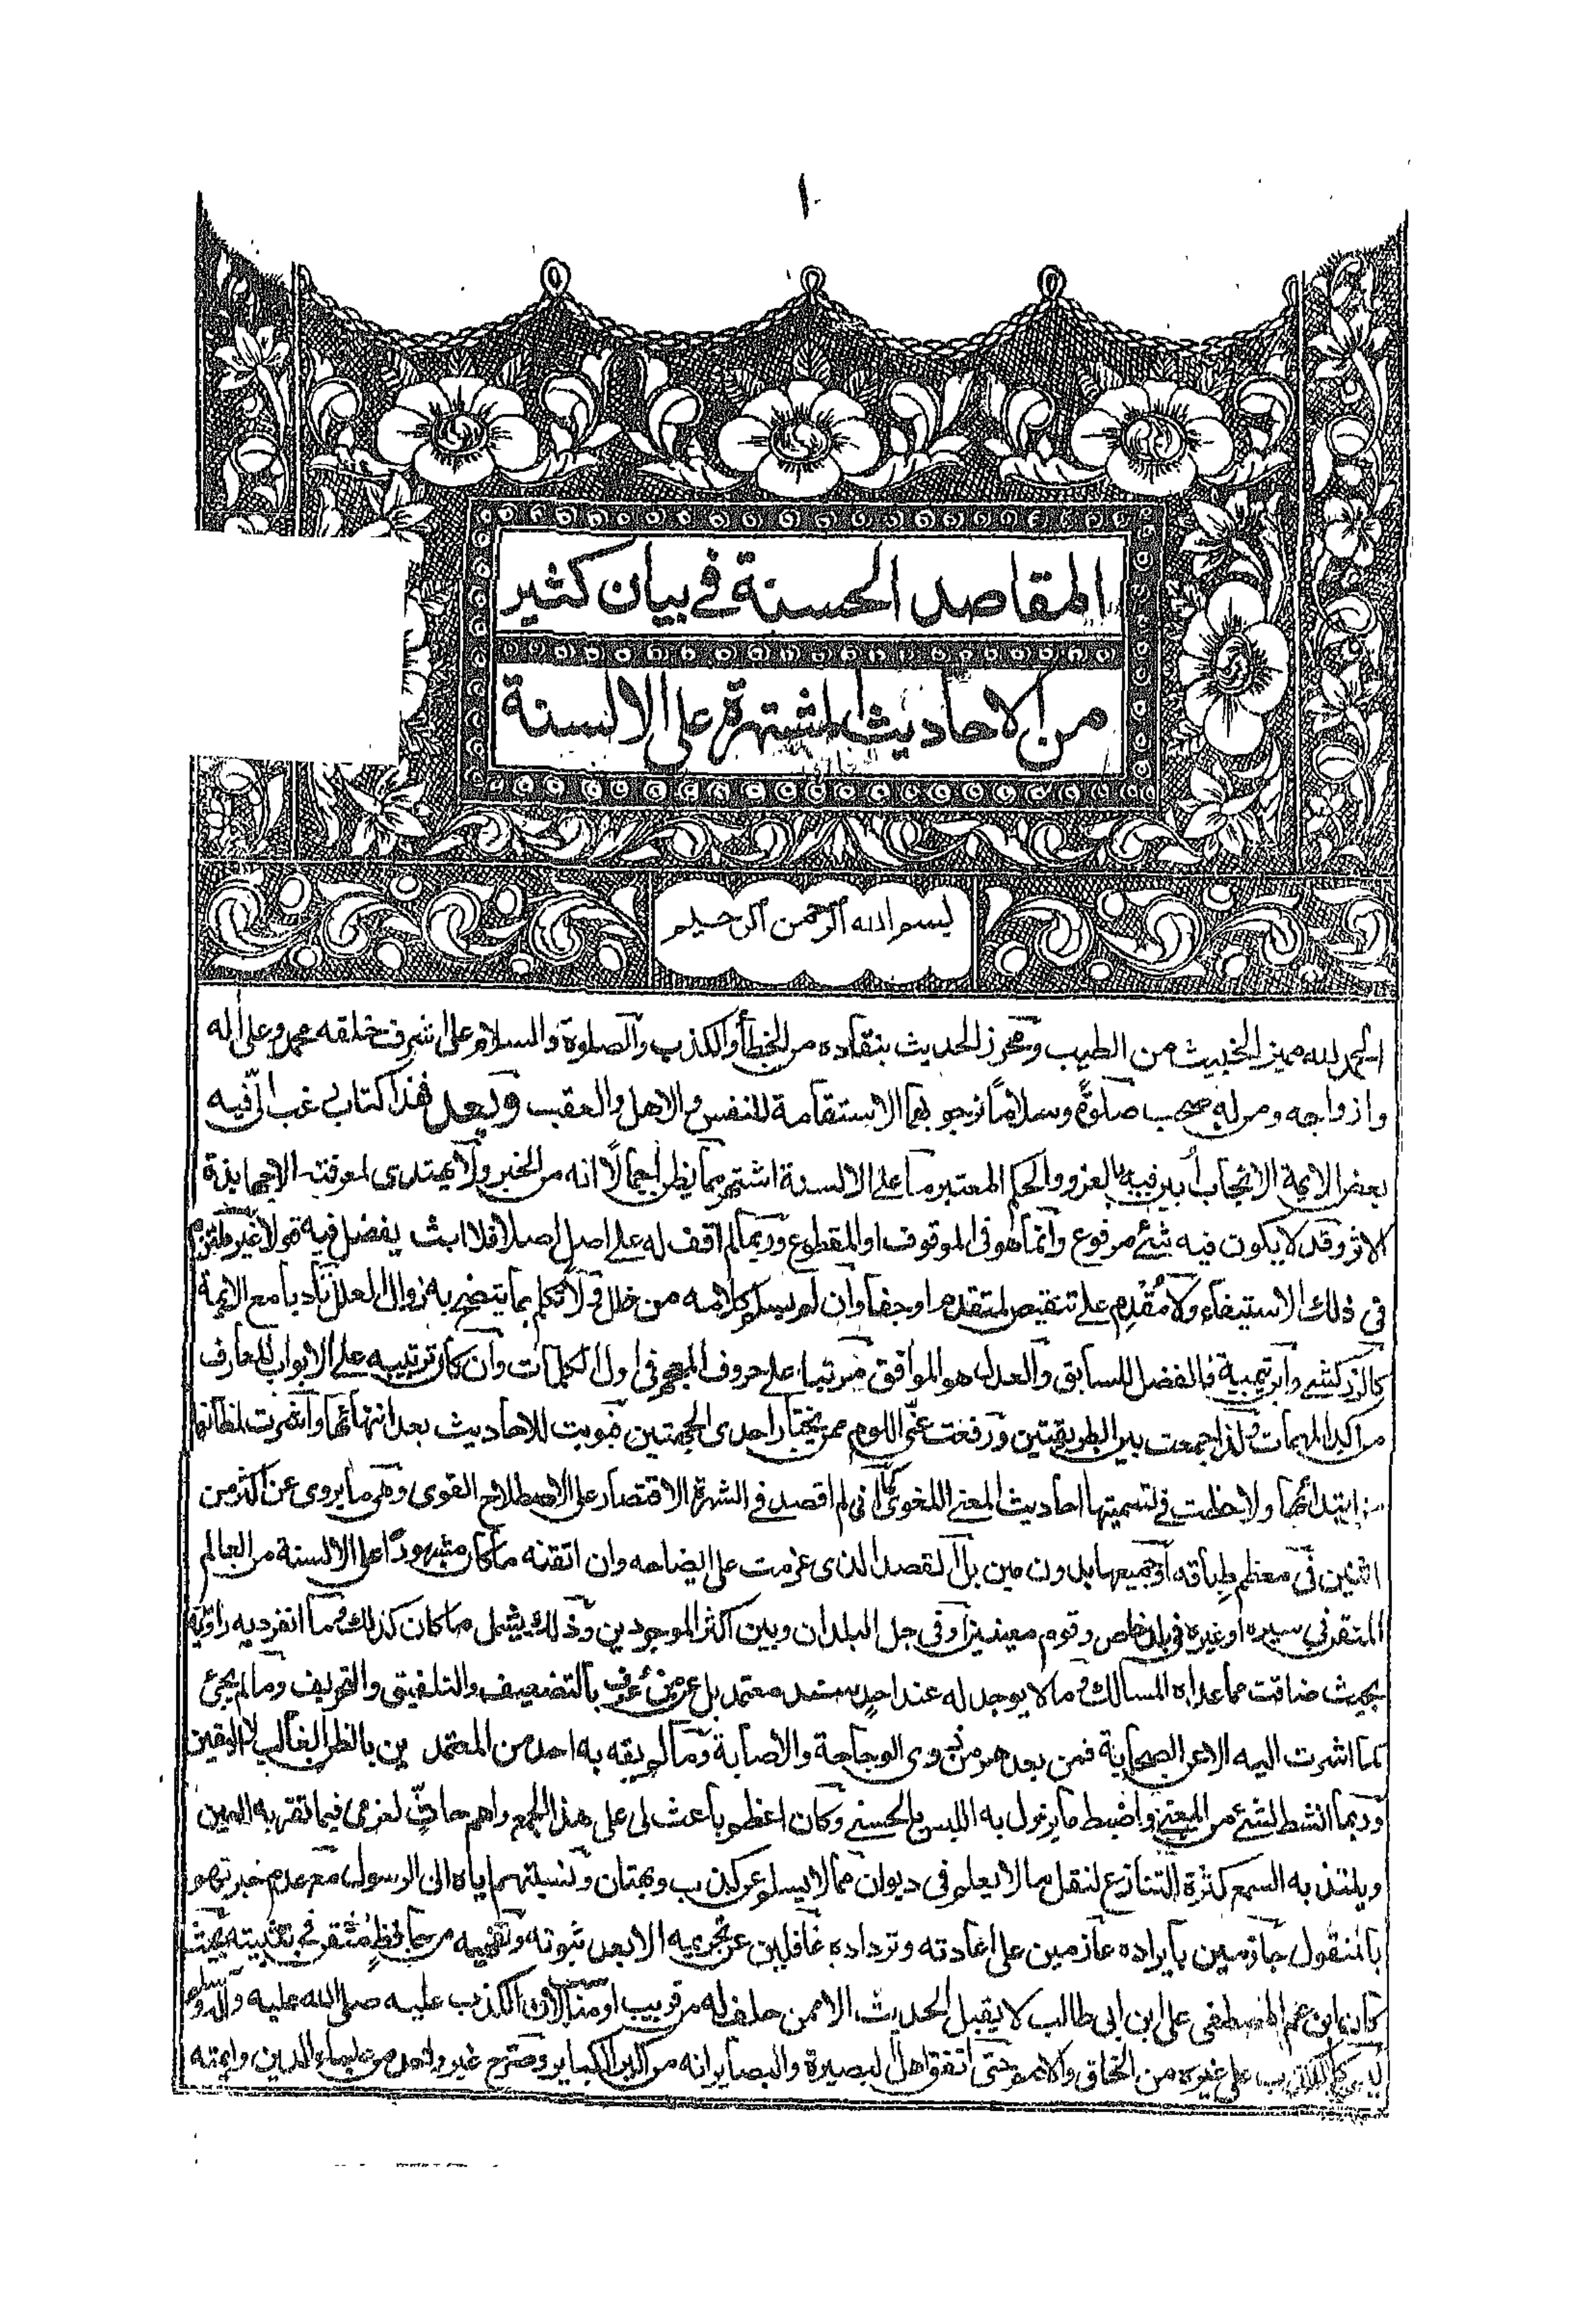 ١
المقاصد الحسنة في بيان كثير
من الاحاديث المشتهرة على الالسنة
بسم الله الرحمن الرحيم
الحمد لله مميز الخبيث من الطيب ومحرز الحديث بنقاده من الخطأ والكذب والصلوة والسلام على اشرف خلقه محمد وعلى اله
وازواجه ومن له صحب صلوة وسلاما نرجو بهما الاستقامة للنفس والاهل والعقب وبعد فهذا كتاب رغب الي فيه
بعض الايمة الانجاب أبين فيه بالعزو والحكم المعتبر ما على الالسنة اشتهر مما يظن اجمالا انه من الخبر ولا يهتدى لمعرفته الا جهابذة
الاثر وقد لا يكون فيه شئ مرفوع وانما هو في الموقوف او المقطوع وربما لم اقف له على اصل اصلا فلا ابث بفضل فيه قولا غير ملتزم
في ذلك الاستيفاء ولا مقدم على تنقيص لمتقدم او جفا وان لم يسلم كلامه من خلل ولا تكلم بما يتضح به زوال العلل تأدبا مع الايمة
كالزركشي وابن تيمية فالفضل للسابق والعدل هو الموافق مرتبا على حروف المعجم في اول الكلمات وان كان ترتيبه على الابواب للعارف
من اكد المهمات ولذا جمعت بين الطريقتين ورفعت عني اللوم ممن يختار احدى الجهتين فبوبت للاحاديث بعد انتهائها واشرت لمظانها
من ابتدائها ولاحظت في تسميتها احاديث المعنى اللغوي كما اني لم اقصد في الشهرة الاقتصار على الاصطلاح القوى وهي ما يروى عن اكثر من
اثنين في معظم طباقه او جميعها بدون مين بل القصد الذي عزمت على ايضاحه وان اتقنه ما كان مشهودا على الالسنة من العالم
المتقن في سيره او غيره في بلد خاص وقوم معينين او في جل البلدان وبين اكثر الموجودين وذلك يشمل ما كان كذلك وما انفرد به راويه
بحيث ضاقت مما عداه المسالك وما لا يوجد له عند احد سند معتمد بل عمن عرف بالتضعيف والتلفيق والتحريف وما لم يجئ
كما اشرت اليه الا عن الصحابة فمن بعدهم من ذوى الوجاهة والاصابة وما لم يفه به احد من المعتمدين بالظن الغالب لا اليقين
وربما انشط لشئ من المعنى واضبط ما يزول به اللبس بالحسنى وكان اعظم باعث لي على هذا الجمع واهم حاث لعزمي فيما تقر به العين
ويلتذ به السمع كثرة التنازع لنقل ما لا يعلم في ديوان مما لا يسلم عن كذب وبهتان ونسبتهم اياه الى الرسول مع عدم خبرتهم
بالمنقول جازمين بايراده عازمين على اعادته وترداده غافلين عن تحريمه الا بعد ثبوته وتفهيمه من حافظ متقن في تثبيته بحيث
كان ابن عم المصطفى على ابن ابى طالب لا يقبل الحديث الا ممن حلف له من قريب او مناسب لان الكذب عليه صلى الله عليه واله وسلم
ليس كالكذب على غيره من الخلق والامم حتى اتفق اهل البصيرة والبصاير انه من اكبر الكباير وصرح غير واحد من علماء الدين وايمته